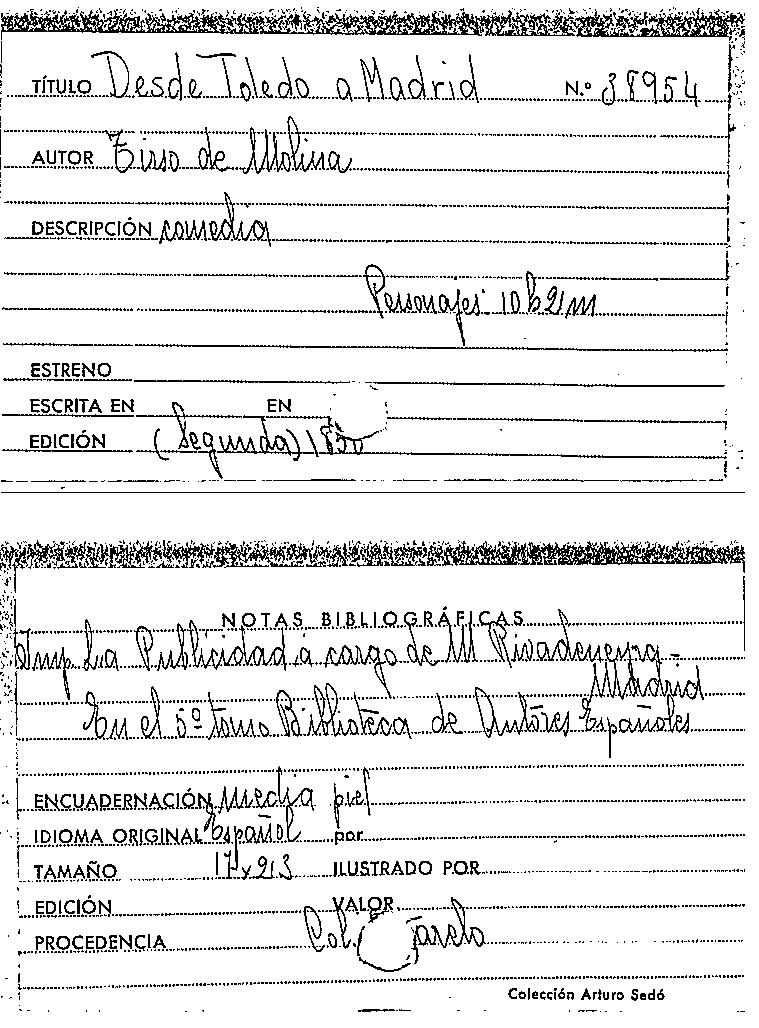 TÍTULO Desde Toledo a Madrid N.º 38954
AUTOR Tirso de Molina
DESCRIPCIÓN comedia
Personajes 10 h 2 m
ESTRENO
ESCRITA EN EN
EDICIÓN (Segunda) 1850
NOTAS BIBLIOGRÁFICAS
Imp La Publicidad á cargo de M Rivadeneyra -
Madrid
En el 5º tomo Biblioteca de Autores Españoles
ENCUADERNACIÓN media piel
IDIOMA ORIGINAL Español por
TAMAÑO 17 x 23 ILUSTRADO POR
EDICIÓN VALOR
PROCEDENCIA Col.
Colección Arturo Sedó